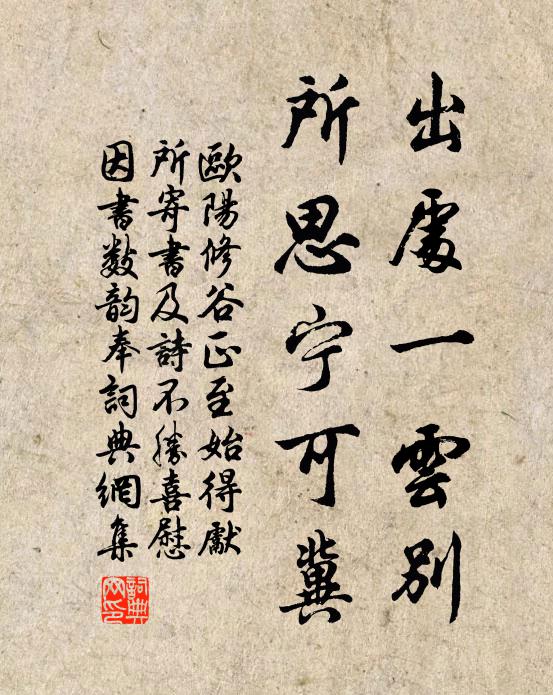 出處一雲別
所思宁可冀
歐陽修谷正至始得獻
所寄書及詩不勝喜慰
因書数韵奉詞典網集
詞典
网印